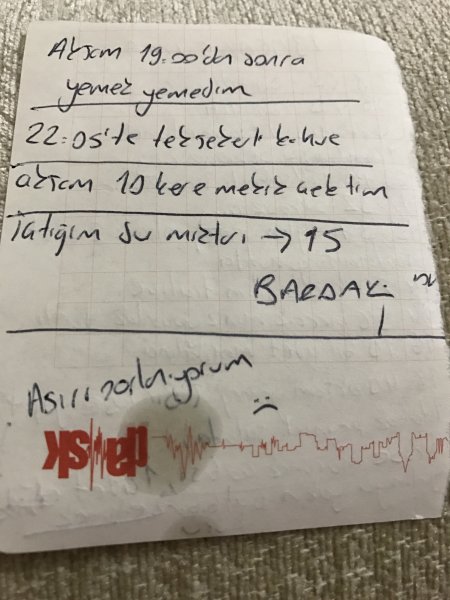 Akşam 19.00'dan sonra
yemek yemedim
22:05'te tekşekerli kahve
akşam 10 kere mekik çektim
içtiğim su miktarı → 15
BARDAK
su
Aşırı zorlanıyorum
:(
dask